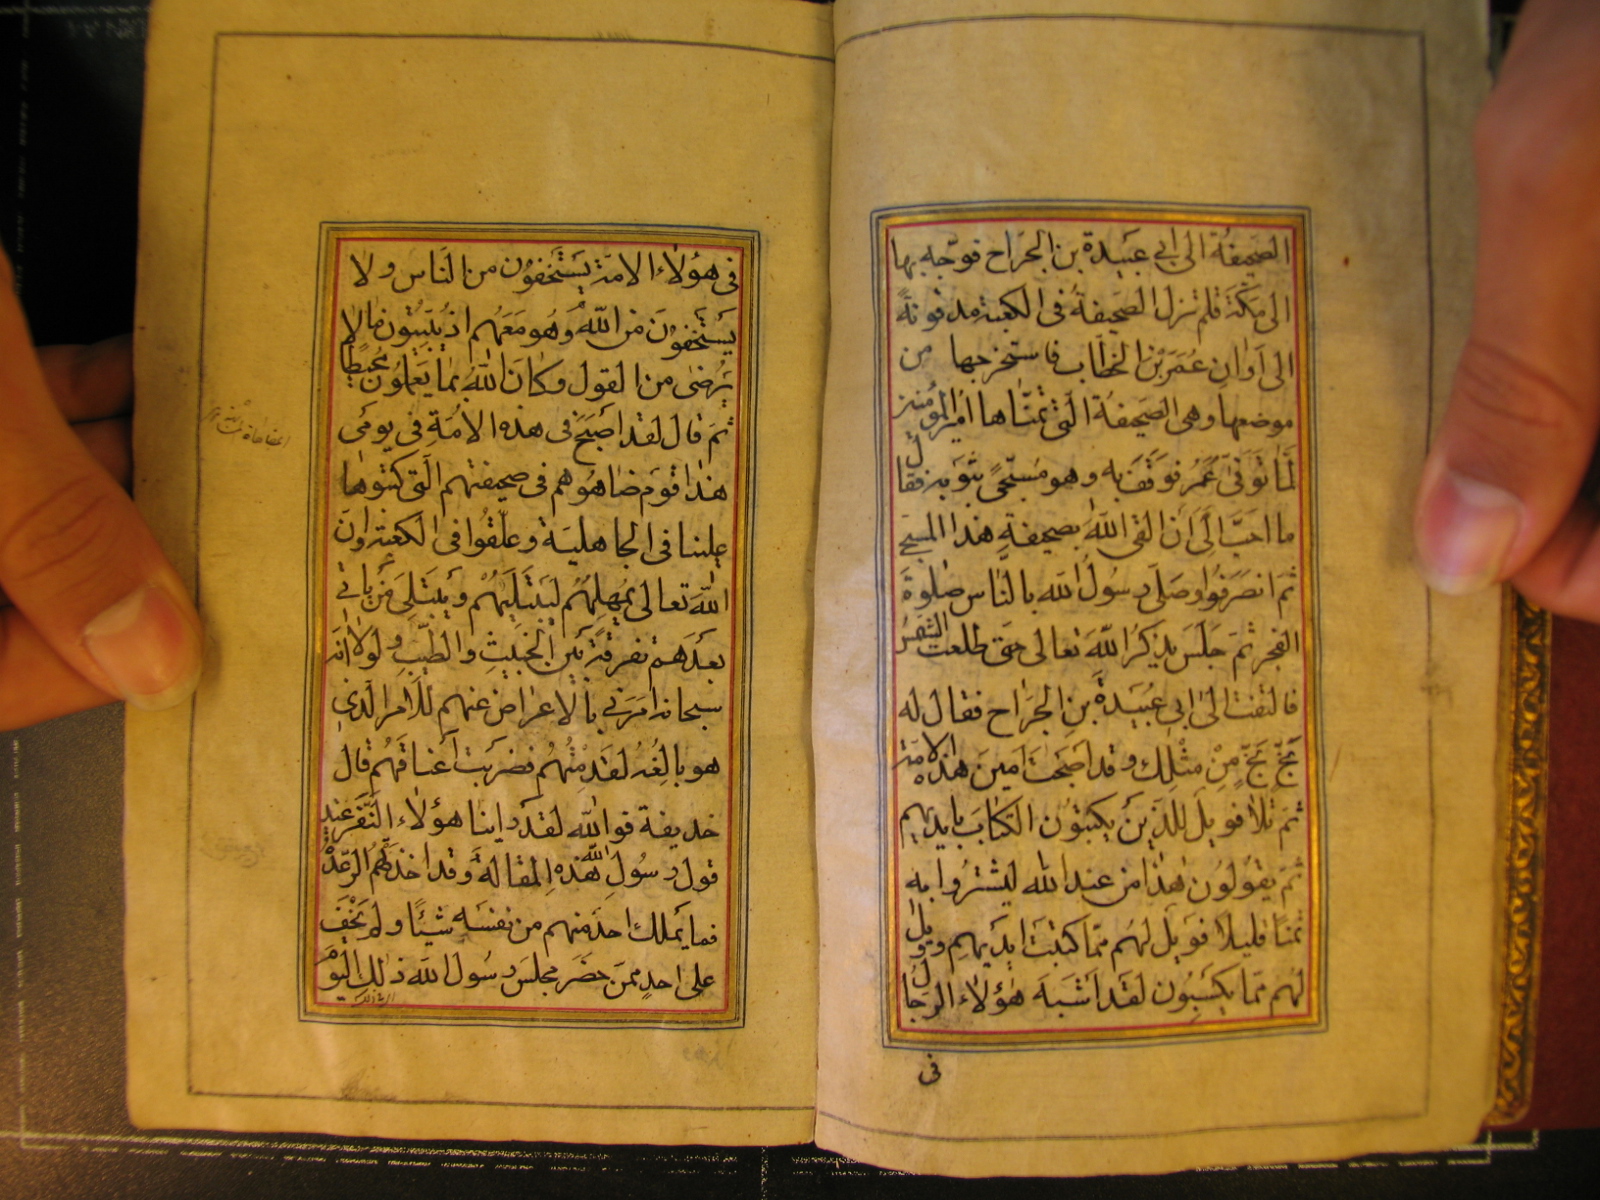 الصحيفة الى ابي عبيدة بن الجراح فوجه بها
الى مكة فلم تزل الصحيفة فى الكعبة مدفونة
الى اوان عمر بن الخطاب فاستخرجها من
موضعها وهى الصحيفة التى تمناها امير المؤمنين
لما توفى عمر فوقف به وهو مسجى بثوبه فقال
ما احب الى ان القى الله بصحيفة هذا المسجى
ثم انصرفوا وصلى رسول الله بالناس صلوة
الفجر ثم جلس يذكر الله تعالى حتى طلعت الشمس
فالتفت الى ابى عبيدة بن الجراح فقال له
بخ بخ من مثلك وقد اصبحت امين هذه الامة
ثم تلا فويل للذين يكتبون الكتاب بايديهم
ثم يقولون هذا من عند الله ليشتروا به
ثمنا قليلا فويل لهم مما كتبت ايديهم وويل
لهم مما يكسبون لقد اشبه هؤلاء الرجال
فى
فى هؤلاء الامة يستخفون من الناس ولا
يستخفون من الله وهو معهم اذ يبيتون ما لا
يرضى من القول وكان الله بما يعملون محيطا
ثم قال لقد اصبح فى هذه الامة فى يومى
هذا قوم ضاهوهم فى صحيفتهم التى كتبوها
علينا فى الجاهلية وعلقوا فى الكعبة وان
الله تعالى يمهلهم ليبتليهم ويبتلى من ياتى
بعدهم تفرقة بين الخبيث والطيب ولولا انه
سبحانه امرنى بالاعراض عنهم للامر الذى
هو بالغه لقدمتهم فضربت اعناقهم قال
حذيفة فوالله لقد راينا هؤلاء النفر عند
قول رسول الله هذه المقالة وقد اخذتهم الرعدة
فما يملك احد منهم من نفسه شيئا ولم يخف
على احد ممن حضر مجلس رسول الله ذلك اليوم